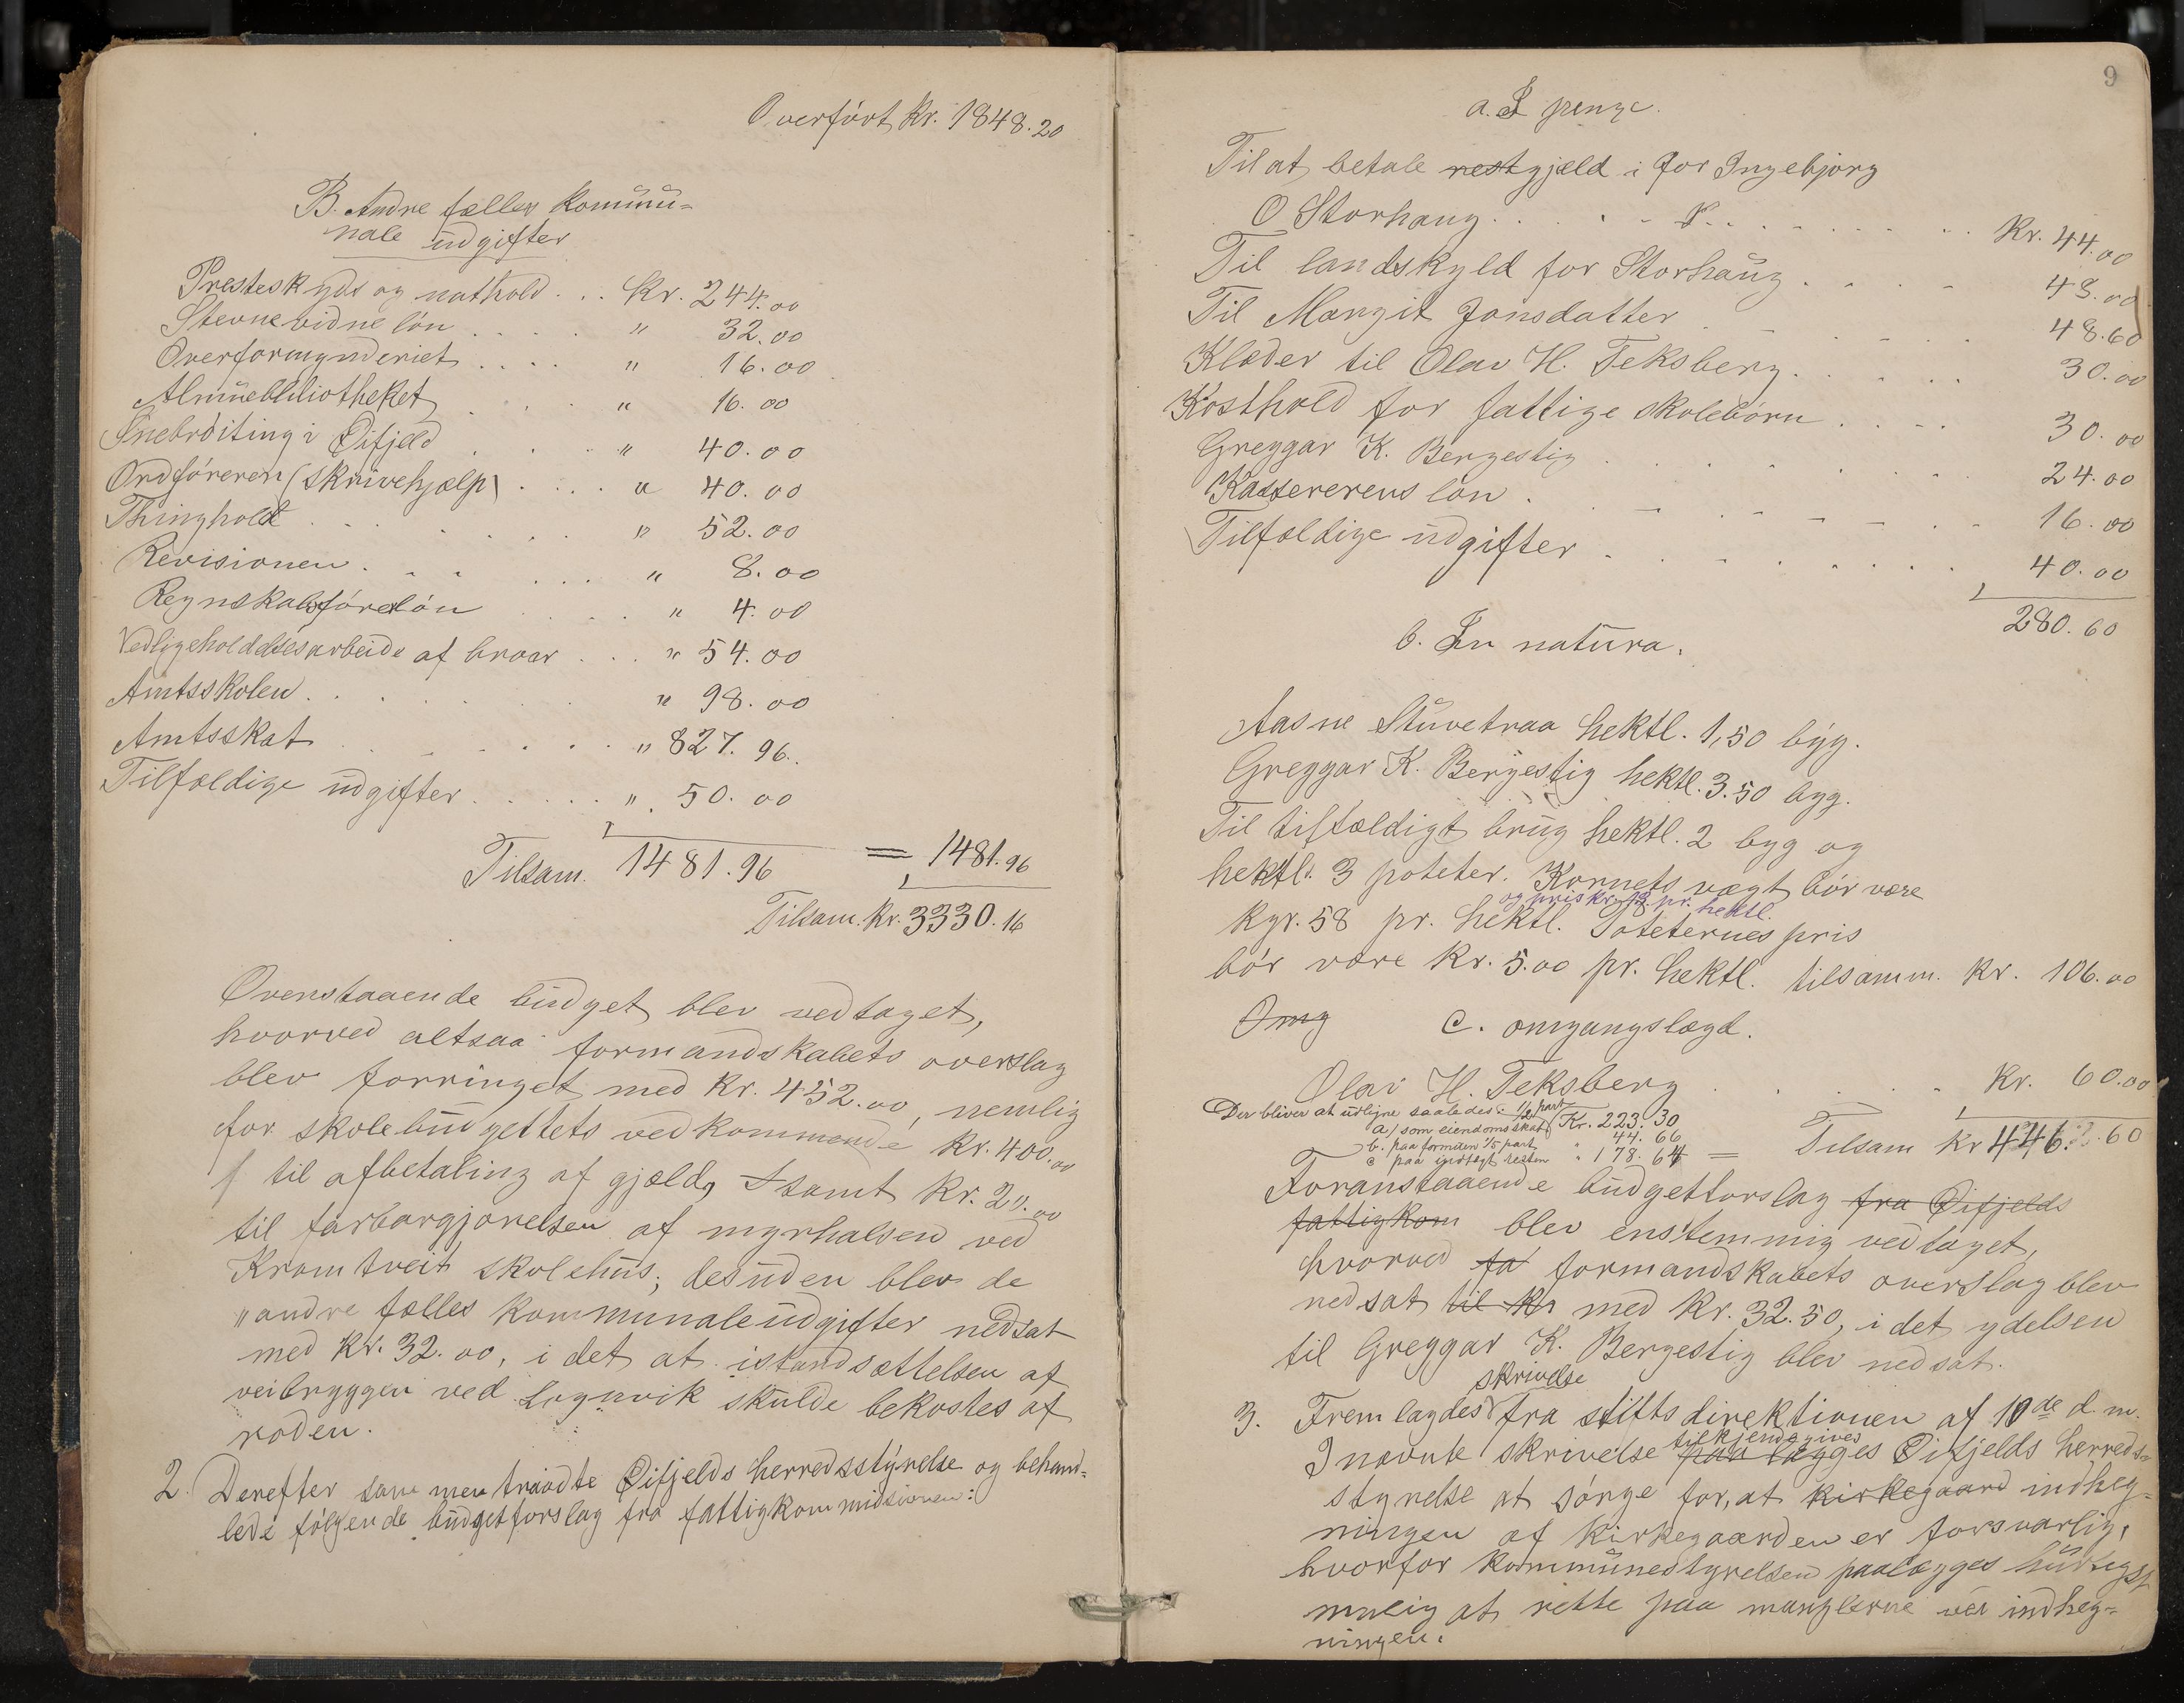 Overført Kr. 1848.20
B. Andre fælles kommu-
nale udgifter
Presteskyds og nathold . . . Kr. 244.00
Stevnevidneløn . . . . " 32.00
Overformynderiet . . . . " 16.00
Almuebibliotheket . . . " 16.00
Snebrøiting i Øifjeld . . . " 40.00
Ordføreren (skrivehjælp) . . . . " 40.00
Thinghold . . . . . . " 52.00
Revisionen . . . . . . " 8.00
Regnskabsførerløn . . . . " 4.00
Vedligeholdelsesarbeide af broar . . . " 54.00
Amtsskolen . . . . . " 98.00
Amtsskat . . . . . . " 827.96.
Tilfældige udgifter . . . . . " 50.00
Tilsam. 1481.96 = 1481.96
Tilsam. Kr. 3330.16
Ovenstaaende budget blev vedtaget,
hvorved altsaa formandskabets overslag
blev forringet med Kr. 452.00, nemlig
for skolebudgettets vedkommende Kr. 400.00
til afbetaling af gjæld, samt Kr. 20.00
til farbargjørelsen af myrhalsen ved
Kromtveit skolehus; desuden blev de
"andre fælles kommunaleudgifter nedsat
med Kr. 32.00, i det at istandsættelsen af
veibryggen ved Lognvik skulde bekostes af
roden.
2. Derefter sammentraadte Øifjelds herredsstyrelse og behand-
lede følgende budgetforslag fra fattigkommissionen:
9
a. I penge.
Til at betale restgjæld i for Ingebjørg
O Storhaug . . . . . . . . . . Kr. 44.00
Til landskyld for Storhaug . . . . 48.00
Til Margit Jonsdatter . . . . . 48.60
Klæder til Olav H. Teksberg . . . . . 30.00
Kosthold for fattige skolebørn . . . . 30.00
Greggar K. Bergestig . . . . . . 24.00
Kassererens løn . . . . . . . 16.00
Tilfældige udgifter . . . . . . . 40.00
280.60
b. In natura.
Aasne Stuvetraa hektl. 1,50 byg.
Greggar K. Bergestig hektl. 3.50 byg.
Til tilfældigt brug hektl. 2 byg og
hektl. 3 poteter. Kornets vægt bør være
og pris kr. 13 pr. hektl.
kgr. 58 pr. hektl. Poteternes pris
bør være Kr. 5.00 pr. hektl. tilsamm. Kr. 106.00
Omg c. omgangslægd.
Olav H. Teksberg . . . . . Kr. 60.00
Der bliver at udligne saaledes:
a) som eiendomsskat 1/2 part Kr. 223.30
b. paa formuen 1/5 part " 44.66
c paa indtægt resten " 178.64 = Tilsam Kr 446.60
Foranstaaende budgetforslag fra Øifjelds
fattigkom blev enstemmig vedtaget,
hvorved fa formandskabets overslag blev
nedsat til Kr med Kr. 32.50, i det ydelsen
til Greggar K. Bergestig blev nedsat.
skrivelse
3. Fremlagdes fra stiftsdirektionen af 10de d. m.
tilkjendegives
I nævnte skrivelse paalægges Øifjelds herreds-
styrelse at sørge for, at kirkegaard indheg-
ningen af kirkegaarden er forsvarlig,
hvorfor kommunestyrelsen paalægges hurtigst
mulig at rette paa manglerne ved indheg-
ningen.